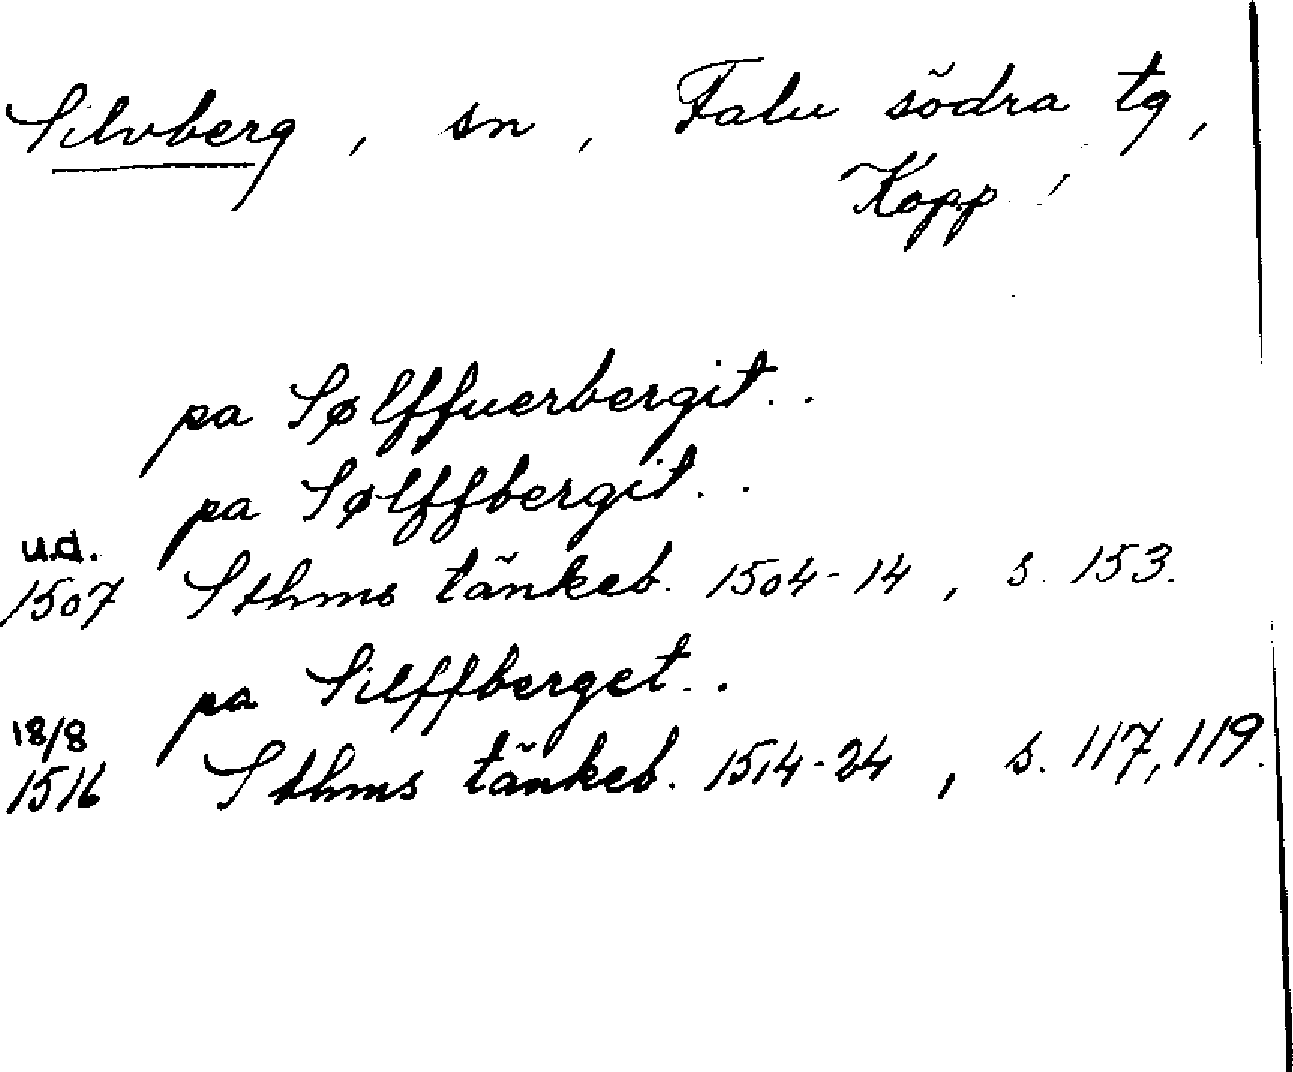 Silvberg, sn, Falu södra tg,
Kopp.
pa Sølffuerbergit..
pa Sølffbergit..
u.d.
1507 Sthms tänkeb. 1504-14, s. 153.
pa Silffberget..
18/8
1516 Sthms tänkeb. 1514-24, s. 117, 119.